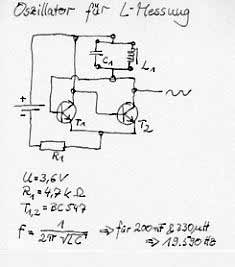 Oszillator für L-Messung
C1
L1
+
-
T1
T2
R1
U=3,6V
R1=4,7kΩ
T1,2=BC547
f= 1/2π√LC ⇒ für 200nF & 330µH
⇒ 19.590Hz